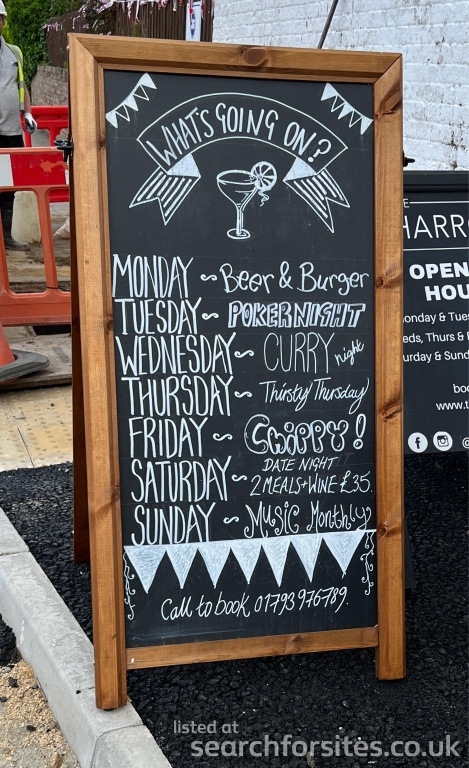 WHAT'S GOING ON?
MONDAY ~ Beer & Burger
TUESDAY ~ POKER NIGHT
WEDNESDAY ~ CURRY night
THURSDAY ~ Thirsty Thursday
FRIDAY ~ CHIPPY!
SATURDAY ~ DATE NIGHT
2 MEALS + WINE £35.
SUNDAY ~ Music Monthly
Call to book 01793 976789.
OPEN
www.t
listed at
searchforsites.co.uk